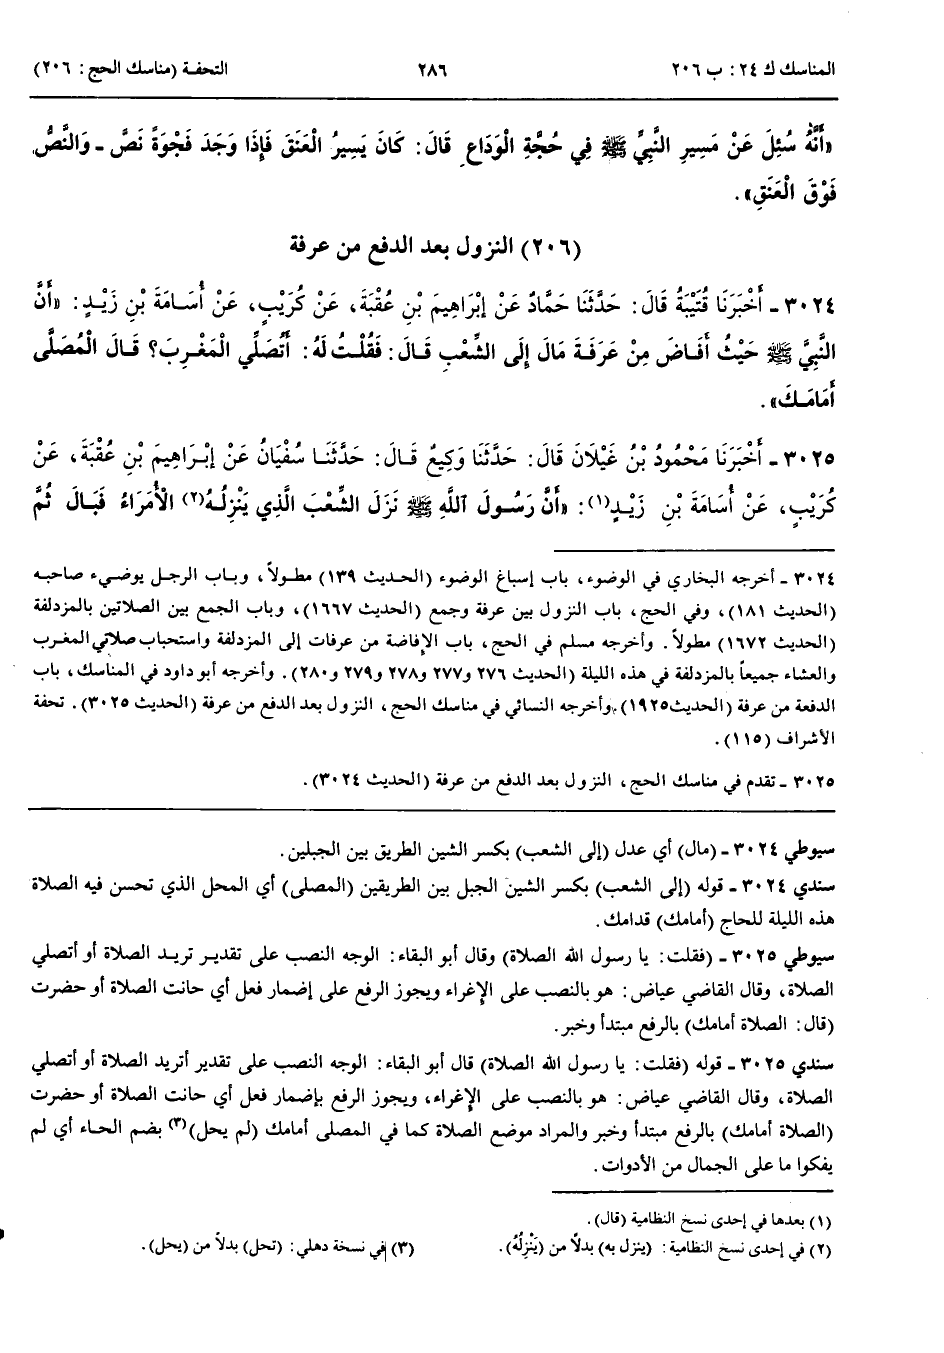 المناسك ك ٢٤: ب ٢٠٦ ٢٨٦ التحفة (مناسك الحج: ٢٠٦)
«أَنَّهُ سُئِلَ عَنْ مَسِيرِ النَّبِيِّ ﷺ فِي حُجَّةِ الْوَدَاعِ قَالَ: كَانَ يَسِيرُ الْعَنَقَ فَإِذَا وَجَدَ فَجْوَةً نَصَّ - وَالنَّصُّ
فَوْقَ الْعَنَقِ».
(٢٠٦) النزول بعد الدفع من عرفة
٣٠٢٤ - أَخْبَرَنَا قُتَيْبَةُ قَالَ: حَدَّثَنَا حَمَّادٌ عَنْ إِبْرَاهِيمَ بْنِ عُقْبَةَ، عَنْ كُرَيْبٍ، عَنْ أُسَامَةَ بْنِ زَيْدٍ: «أَنَّ
النَّبِيَّ ﷺ حَيْثُ أَفَاضَ مِنْ عَرَفَةَ مَالَ إِلَى الشِّعْبِ قَالَ: فَقُلْتُ لَهُ: أَتُصَلِّي الْمَغْرِبَ؟ قَالَ الْمُصَلَّى
أَمَامَكَ».
٣٠٢٥ - أَخْبَرَنَا مَحْمُودُ بْنُ غَيْلَانَ قَالَ: حَدَّثَنَا وَكِيعٌ قَالَ: حَدَّثَنَا سُفْيَانُ عَنْ إِبْرَاهِيمَ بْنِ عُقْبَةَ، عَنْ
كُرَيْبٍ، عَنْ أُسَامَةَ بْنِ زَيْدٍ(١): «أَنَّ رَسُولَ اللَّهِ ﷺ نَزَلَ الشِّعْبَ الَّذِي يَنْزِلُهُ(٢) الْأُمَرَاءُ فَبَالَ ثُمَّ
٣٠٢٤ - أخرجه البخاري في الوضوء، باب إسباغ الوضوء (الحديث ١٣٩) مطولاً، وباب الرجل يوضيء صاحبه
(الحديث ١٨١)، وفي الحج، باب النزول بين عرفة وجمع (الحديث ١٦٦٧)، وباب الجمع بين الصلاتين بالمزدلفة
(الحديث ١٦٧٢) مطولاً. وأخرجه مسلم في الحج، باب الإفاضة من عرفات إلى المزدلفة واستحباب صلاتي المغرب
والعشاء جميعاً بالمزدلفة في هذه الليلة (الحديث ٢٧٦ و٢٧٧ و٢٧٨ و٢٧٩ و٢٨٠). وأخرجه أبو داود في المناسك، باب
الدفعة من عرفة (الحديث١٩٢٥)، وأخرجه النسائي في مناسك الحج، النزول بعد الدفع من عرفة (الحديث ٣٠٢٥). تحفة
الأشراف (١١٥).
٣٠٢٥ - تقدم في مناسك الحج، النزول بعد الدفع من عرفة (الحديث ٣٠٢٤).
سيوطي ٣٠٢٤ - (مال) أي عدل (إلى الشعب) بكسر الشين الطريق بين الجبلين.
سندي ٣٠٢٤ - قوله (إلى الشعب) بكسر الشين الجبل بين الطريقين (المصلى) أي المحل الذي تحسن فيه الصلاة
هذه الليلة للحاج (أمامك) قدامك.
سيوطي ٣٠٢٥ - (فقلت: يا رسول الله الصلاة) وقال أبو البقاء: الوجه النصب على تقدير تريد الصلاة أو أتصلي
الصلاة، وقال القاضي عياض: هو بالنصب على الإغراء ويجوز الرفع على إضمار فعل أي حانت الصلاة أو حضرت
(قال: الصلاة أمامك) بالرفع مبتدأ وخبر.
سندي ٣٠٢٥ - قوله (فقلت: يا رسول الله الصلاة) قال أبو البقاء: الوجه النصب على تقدير أتريد الصلاة أو أتصلي
الصلاة، وقال القاضي عياض: هو بالنصب على الإغراء، ويجوز الرفع بإضمار فعل أي حانت الصلاة أو حضرت
(الصلاة أمامك) بالرفع مبتدأ وخبر والمراد موضع الصلاة كما في المصلى أمامك (لم يحل)(٣) بضم الحاء أي لم
يفكوا ما على الجمال من الأدوات.
(١) بعدها في إحدى نسخ النظامية (قال).
(٢) في إحدى نسخ النظامية: (ينزل به) بدلاً من (يَنْزِلُهُ). (٣) في نسخة دهلي: (تحل) بدلاً من (يحل).